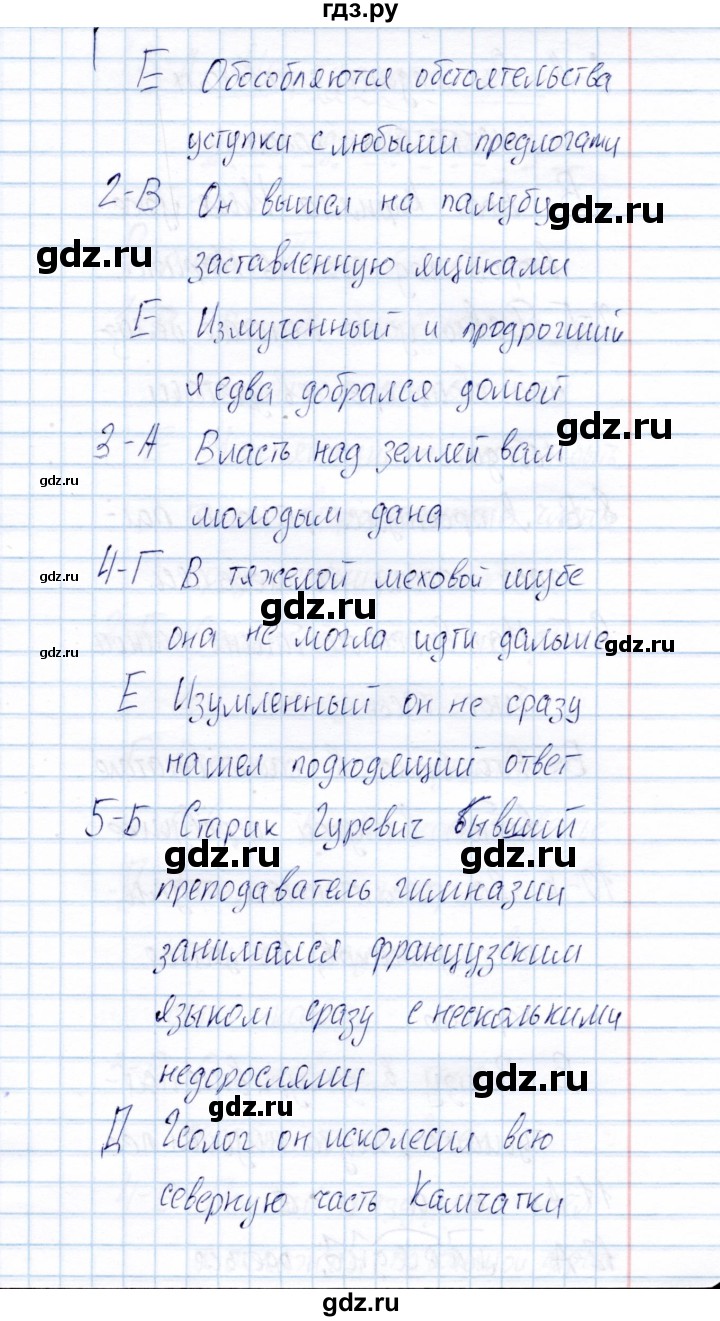 гдз.ру
Е Обособляются обстоятельства
уступки с любыми предлогами
2-В Он вышел на палубу
gdz.ru
gdz.ru
заставленную ящиками
Е Измученный и продрогший
я едва добрался домой
gdz.ru
3-А Власть над землей вам
gdz.ru
молодым дана
4-Г В тяжелой меховой шубе
gdz.ru
gdz.ru
она не могла идти дальше
gdz.ru
gdz.ru
Е Изумленный он не сразу
нашел подходящий ответ
5-Б Старик Гуревич бывший
gdz.ru
gdz.ru
преподаватель гимназии
занимался французским
языком сразу с несколькими
недорослями
gdz.ru
gdz.ru
Д Геолог он исколесил всю
северную часть Камчатки
gdz.ru